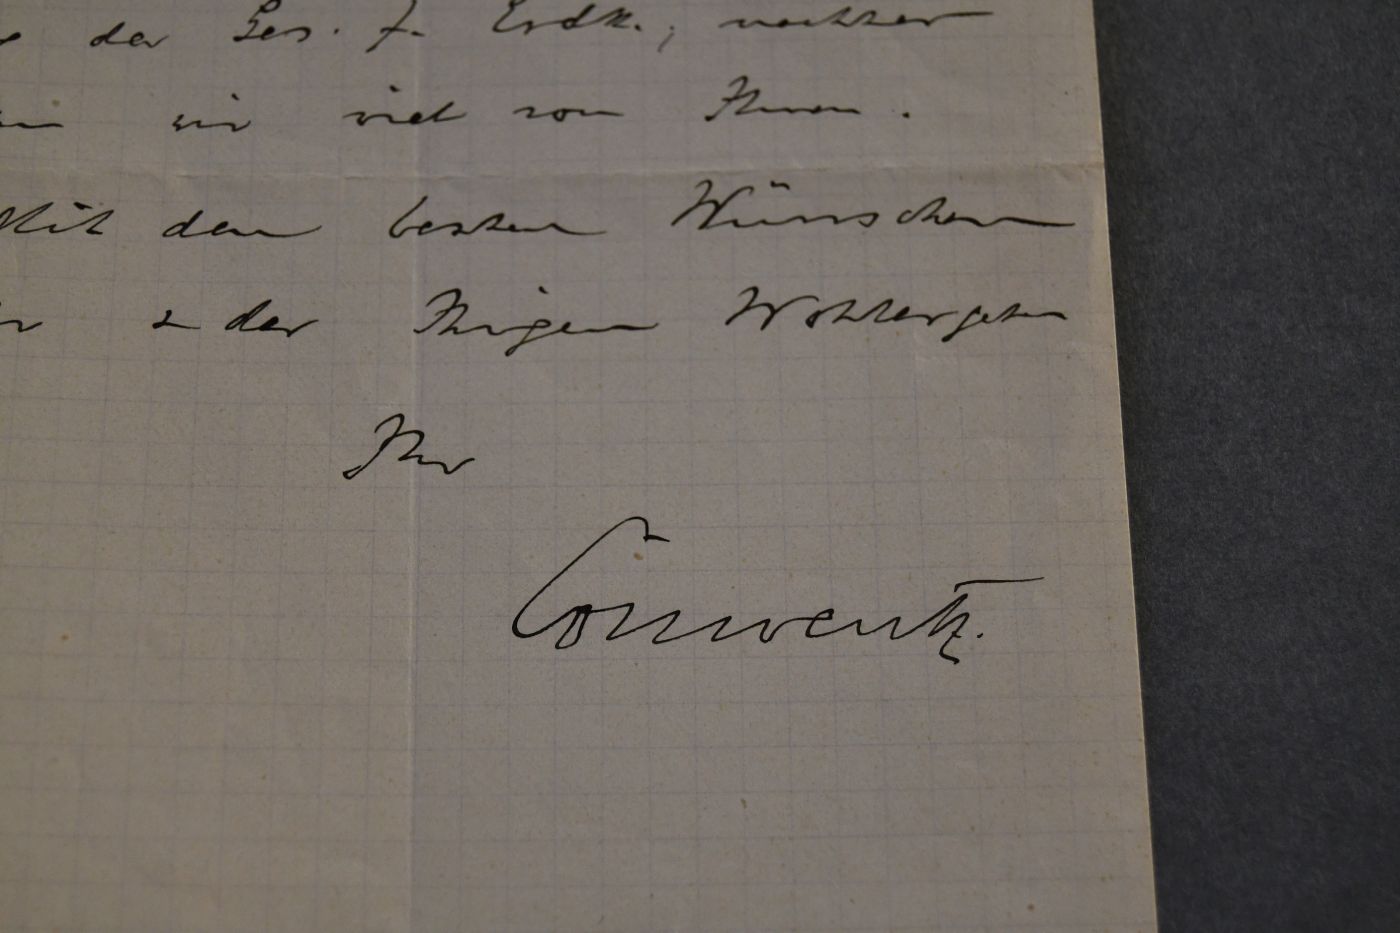 der Ges. f. Erdk., nachher
wir viel von Ihnen.
Mit den besten Wünschen
der Ihrigen Wohlergehen
Ihr
Conwentz.